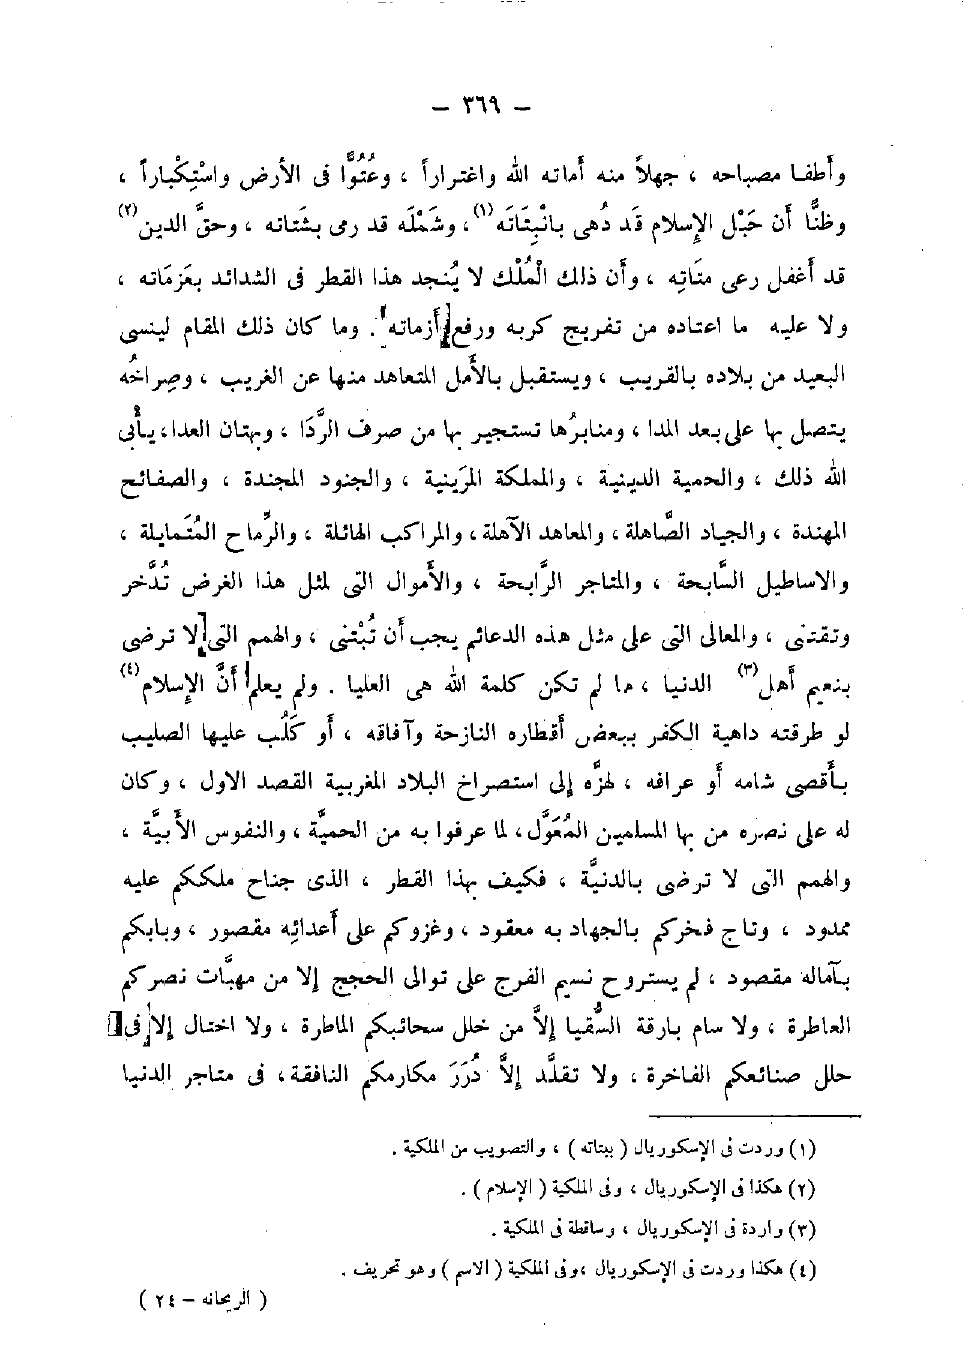 — ٣٦٩ —
وأطفا مصباحه ، جهلاً منه أماته الله واغتراراً ، وعُتُوًّا فى الأرض واسْتِكْباراً ،
وظنًّا أن حَبْل الإسلام قَد دُهى بانْبِتَاتَه(١)، وشَمْلَه قد رمى بشَتاته ، وحقَّ الدين(٢)
قد أغفل رعى متَاتِه ، وأن ذلك الْمُلْك لا يُنجد هذا القطر فى الشدائد بعَزمَاته ،
ولا عليه ما اعتاده من تفريج كربه ورفع أزماته . وما كان ذلك المقام لينسى
البعيد من بلاده بالقريب ، ويستقبل بالأمل المتعاهد منها عن الغريب ، وصِراخُه
يتصل بها على بعد المدا ، ومنابرُها تستجير بها من صرف الرَّدَا ، وبهتان العدا، يأبى
الله ذلك ، والحمية الدينية ، والمملكة المرَينية ، والجنود المجندة ، والصفائح
المهندة ، والجياد الصَّاهلة ، والمعاهد الآهلة ، والمراكب الهائلة ، والرِّماح المُتَمايلة ،
والاساطيل السَّابحة ، والمتاجر الرَّابحة ، والأموال التى لمثل هذا الغرض تُدَّخر
وتقتنى ، والمعالى التى على مثل هذه الدعائم يجب أن تُبْتنى ، والهمم التى لا ترضى
بنعيم أهل(٣) الدنيا ، ما لم تكن كلمة الله هى العليا . ولم يعلم أنَّ الإسلام(٤)
لو طرقته داهية الكفر ببعض أقطاره النازحة وآفاقه ، أو كَلُب عليها الصليب
بأقصى شامه أو عراقه ، لهزَّه إلى استصراخ البلاد المغربية القصد الاول ، وكان
له على نصره من بها المسلمين المُعَوَّل ، لما عرفوا به من الحميَّة ، والنفوس الأبيَّة ،
والهمم التى لا ترضى بالدنيَّة ، فكيف بهذا القطر ، الذى جناح ملككم عليه
ممدود ، وتاج فخركم بالجهاد به معقود ، وغزوكم على أعدائه مقصور ، وبابكم
بآماله مقصود ، لم يستروح نسيم الفرج على توالى الحجج إلا من مهبَّات نصركم
العاطرة ، ولا سام بارقة السُّقيا إلاَّ من خلل سحائبكم الماطرة ، ولا اختال إلا فى
حلل صنائعكم الفاخرة ، ولا تقلَّد إلاَّ دُرَرَ مكارمكم النافقة ، فى متاجر الدنيا
(١) وردت فى الإسكوريال ( ببتاته ) ، والتصويب من الملكية .
(٢) هكذا فى الإسكوريال ، وفى الملكية ( الإسلام ) .
(٣) واردة فى الإسكوريال ، وساقطة فى الملكية .
(٤) هكذا وردت فى الإسكوريال ، وفى الملكية ( الاسم ) وهو تحريف .
( الريحانه — ٢٤ )